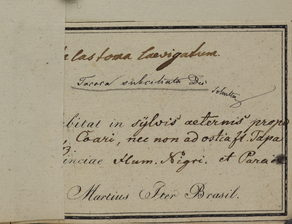 lastoma laevigatum.
Tococa subciliata DC
bitat in sylvis aeternis prope
, Coari, nec non ad ostia fl. Tupa
inciae flum. Nigri. et Para
Martius Iter Brasil.